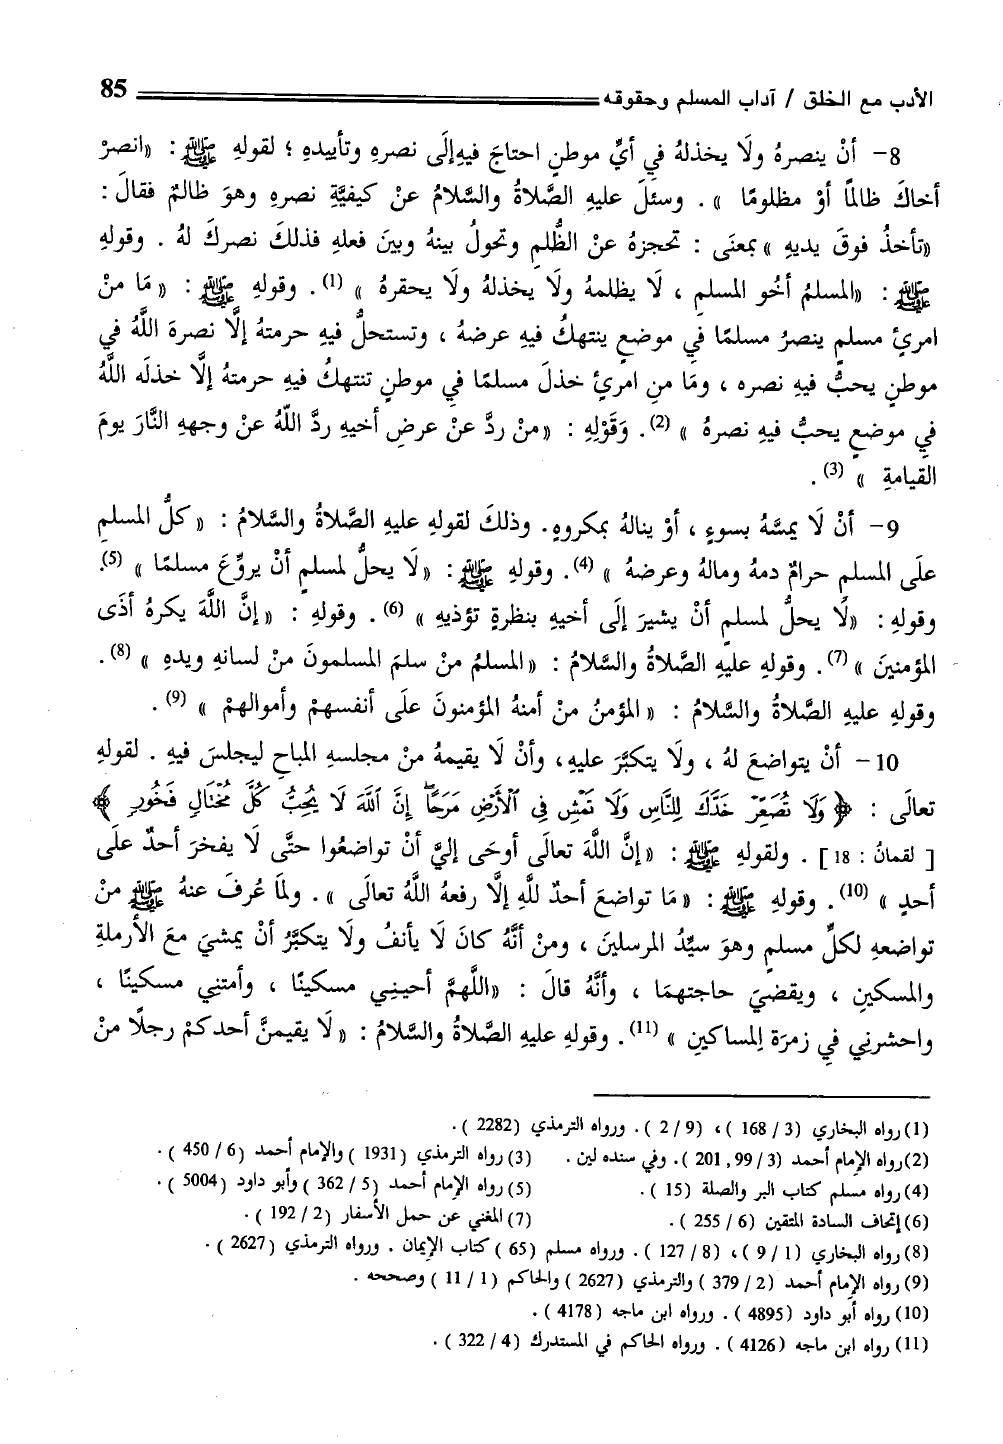 الأدب مع الخلق / آداب المسلم وحقوقه 85
8- أنْ ينصرهُ ولَا يخذلهُ في أيِّ موطنٍ احتاجَ فيهِ إلَى نصرهِ وتأييدهِ ؛ لقولهِ ﷺ : «انصرْ
أخاكَ ظالمًا أوْ مظلومًا » . وسئلَ عليهِ الصَّلاةُ والسَّلامُ عنْ كيفيَّةِ نصرهِ وهوَ ظالمٌ فقالَ :
«تأخذُ فوقَ يديهِ » بمعنَى : تحجزهُ عنْ الظُّلمِ وتحولُ بينهُ وبينَ فعلهِ فذلكَ نصركَ لهُ . وقولهِ
ﷺ : «المسلمُ أخُو المسلمِ ، لَا يظلمهُ ولَا يخذلهُ ولَا يحقرهُ » (1). وقولهِ ﷺ : « مَا منْ
امرئٍ مسلمٍ ينصرُ مسلمًا فِي موضعٍ ينتهكُ فيهِ عرضهُ ، وتستحلُّ فيهِ حرمتهُ إلَّا نصرهَ اللَّهُ في
موطنٍ يحبُّ فيهِ نصره ، ومَا منِ امرئٍ خذلَ مسلمًا في موطنٍ تنتهكُ فيهِ حرمتهُ إلَّا خذلَه اللَّهُ
في موضعٍ يحبُّ فيهِ نصرهُ » (2). وَقَوْلِهِ : «منْ ردَّ عنْ عرضِ أخيهِ ردَّ اللَّهُ عنْ وجههِ النَّارَ يومَ
القيامةِ » (3) .
9- أنْ لَا يمسَّهُ بسوءٍ ، أوْ ينالهُ بمكروهٍ. وذلكَ لقولهِ عليهِ الصَّلاةُ والسَّلامُ : « كلُّ المسلمِ
علَى المسلمِ حرامٌ دمهُ ومالهُ وعرضهُ » (4). وقولهِ ﷺ : «لَا يحلُّ لمسلمٍ أنْ يروِّعَ مسلمًا » (5).
وقولهِ : «لَا يحلُّ لمسلمٍ أنْ يشيرَ إلَى أخيهِ بنظرةٍ تؤذيهِ » (6). وقولهِ : «إنَّ اللَّهَ يكرهُ أذَى
المؤمنينَ » (7). وقولهِ عليهِ الصَّلاةُ والسَّلامُ : «المسلمُ منْ سلمَ المسلمونَ منْ لسانهِ ويدهِ » (8).
وقولهِ عليهِ الصَّلاةُ والسَّلامُ : « المؤمنُ منْ أمنهُ المؤمنونَ علَى أنفسهمْ وأموالهمْ » (9) .
10- أنْ يتواضعَ لهُ ، ولَا يتكبَّرَ عليهِ، وأنْ لَا يقيمهُ منْ مجلسهِ المباحِ ليجلسَ فيهِ . لقولهِ
تعالَى : ﴿ وَلَا تُصَعِّرْ خَدَّكَ لِلنَّاسِ وَلَا تَمْشِ فِى ٱلْأَرْضِ مَرَحًا إِنَّ ٱللَّهَ لَا يُحِبُّ كُلَّ مُخْتَالٍ فَخُورٍ ﴾
[ لقمانُ : 18 ] . ولقولهِ ﷺ : «إنَّ اللَّهَ تعالَى أوحَى إليَّ أنْ تواضعُوا حتَّى لَا يفخرَ أحدٌ علَى
أحدٍ » (10). وقولهِ ﷺ : « مَا تواضعَ أحدٌ للَّهِ إلَّا رفعهُ اللَّهُ تعالَى ». ولمَا عُرفَ عنهُ ﷺ منْ
تواضعهِ لكلِّ مسلمٍ وهوَ سيِّدُ المرسلينَ ، ومنْ أنَّهُ كانَ لَا يأنفُ ولَا يتكبَّرُ أنْ يمشيَ معَ الأرملةِ
والمسكينِ ، ويقضيَ حاجتهمَا ، وأنَّهُ قالَ : «اللَّهمَّ أحينِي مسكينًا ، وأمتنِي مسكينًا ،
واحشرنِي في زمرَةِ المساكينِ » (11). وقولهِ عليهِ الصَّلاةُ والسَّلامُ : «لَا يقيمنَّ أحدكمْ رجلًا منْ
(1) رواه البخاري (3 / 168 )، (9 / 2 ). ورواه الترمذي (2282 ).
(2)رواه الإمام أحمد (3 / 99, 201 ). وفي سنده لين . (3) رواه الترمذي (1931 ) والإمام أحمد (6 / 450 ).
(4) رواه مسلم كتاب البر والصلة (15 ). (5) رواه الإمام أحمد (5 / 362 ) وأبو داود (5004 ).
(6) إتحاف السادة المتقين (6 / 255 ). (7) المغني عن حمل الأسفار (2 / 192 ).
(8) رواه البخاري (1 / 9 )، (8 / 127 ). ورواه مسلم (65 ) كتاب الإيمان . ورواه الترمذي (2627 ).
(9) رواه الإمام أحمد (2 / 379 ) والترمذي (2627 ) والحاكم (1 / 11 ) وصححه .
(10) رواه أبو داود (4895 ). ورواه ابن ماجه (4178 ).
(11) رواه ابن ماجه (4126 ). ورواه الحاكم في المستدرك (4 / 322 ).